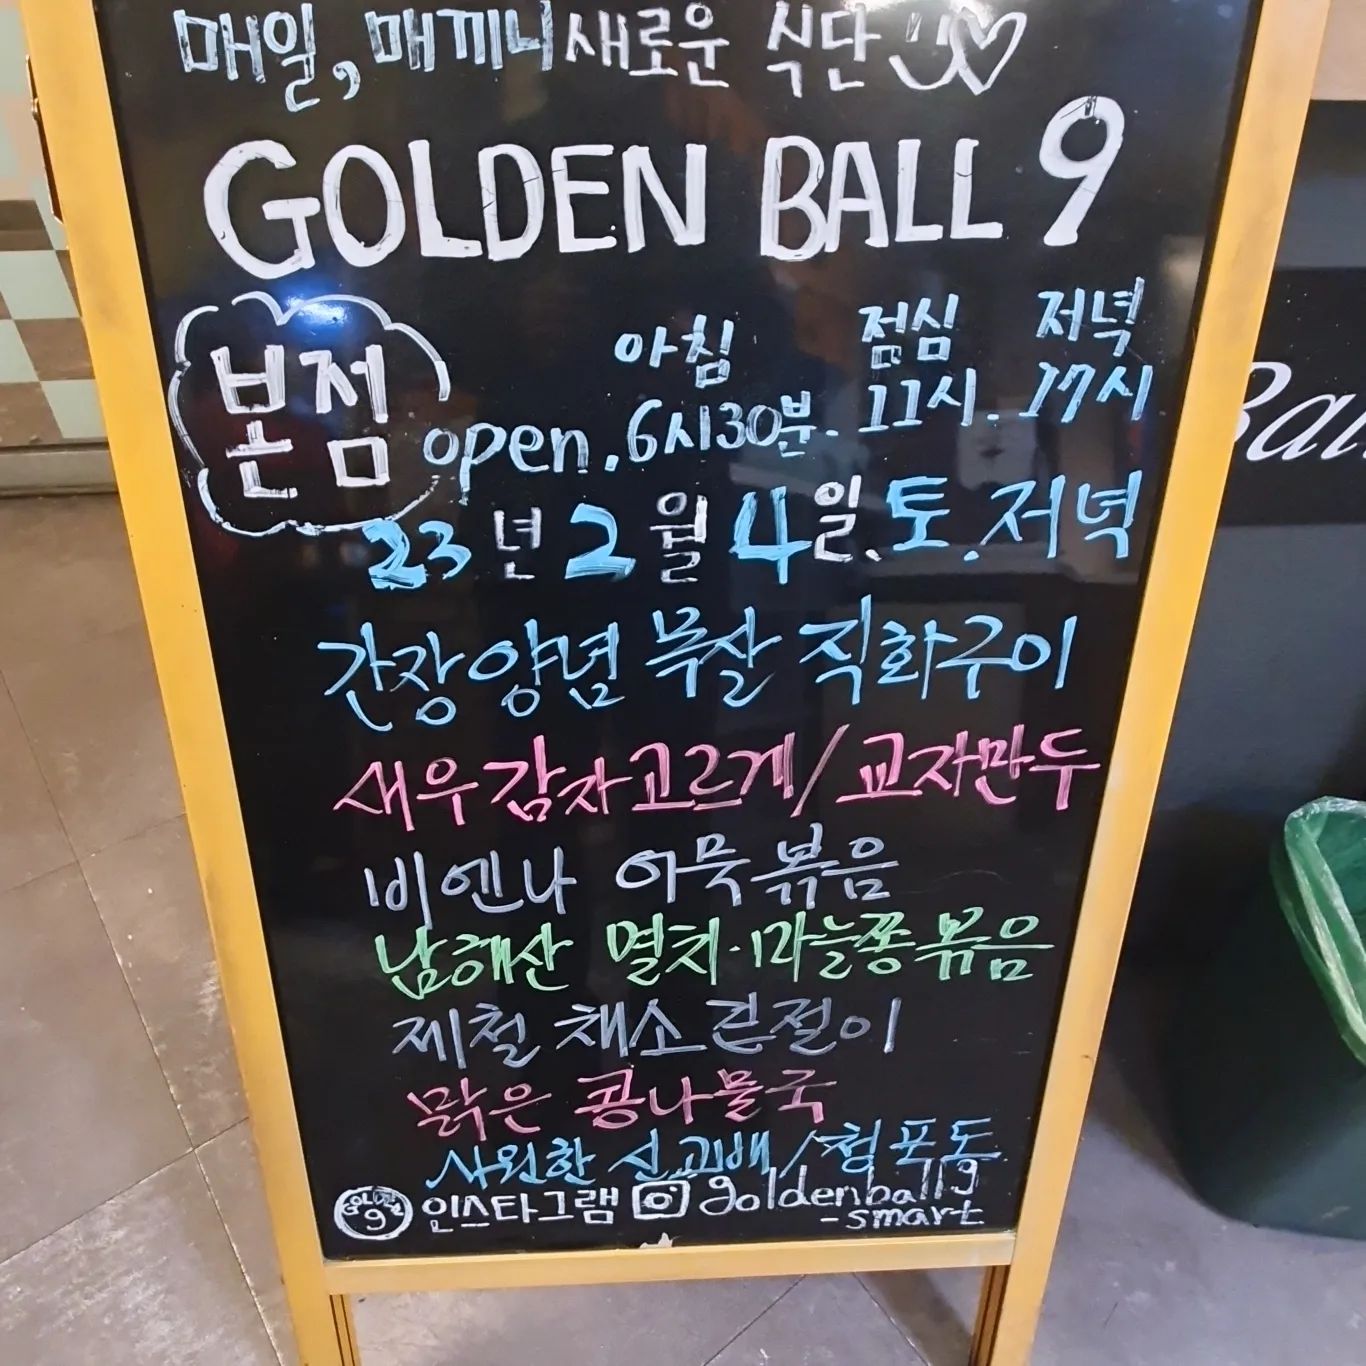 매일, 매끼니 새로운 식단
GOLDEN BALL 9
본점
아침 점심 저녁
open. 6시30분. 11시. 17시
23년 2월 4일. 토. 저녁
간장양념 목살 직화구이
새우감자고르게/교자만두
비엔나 어묵볶음
남해산 멸치.마늘쫑볶음
제철 채소겉절이
맑은 콩나물국
시원한 신고배/청포도
GOLDEN 9 인스타그램 goldenball9
-smart
Bal